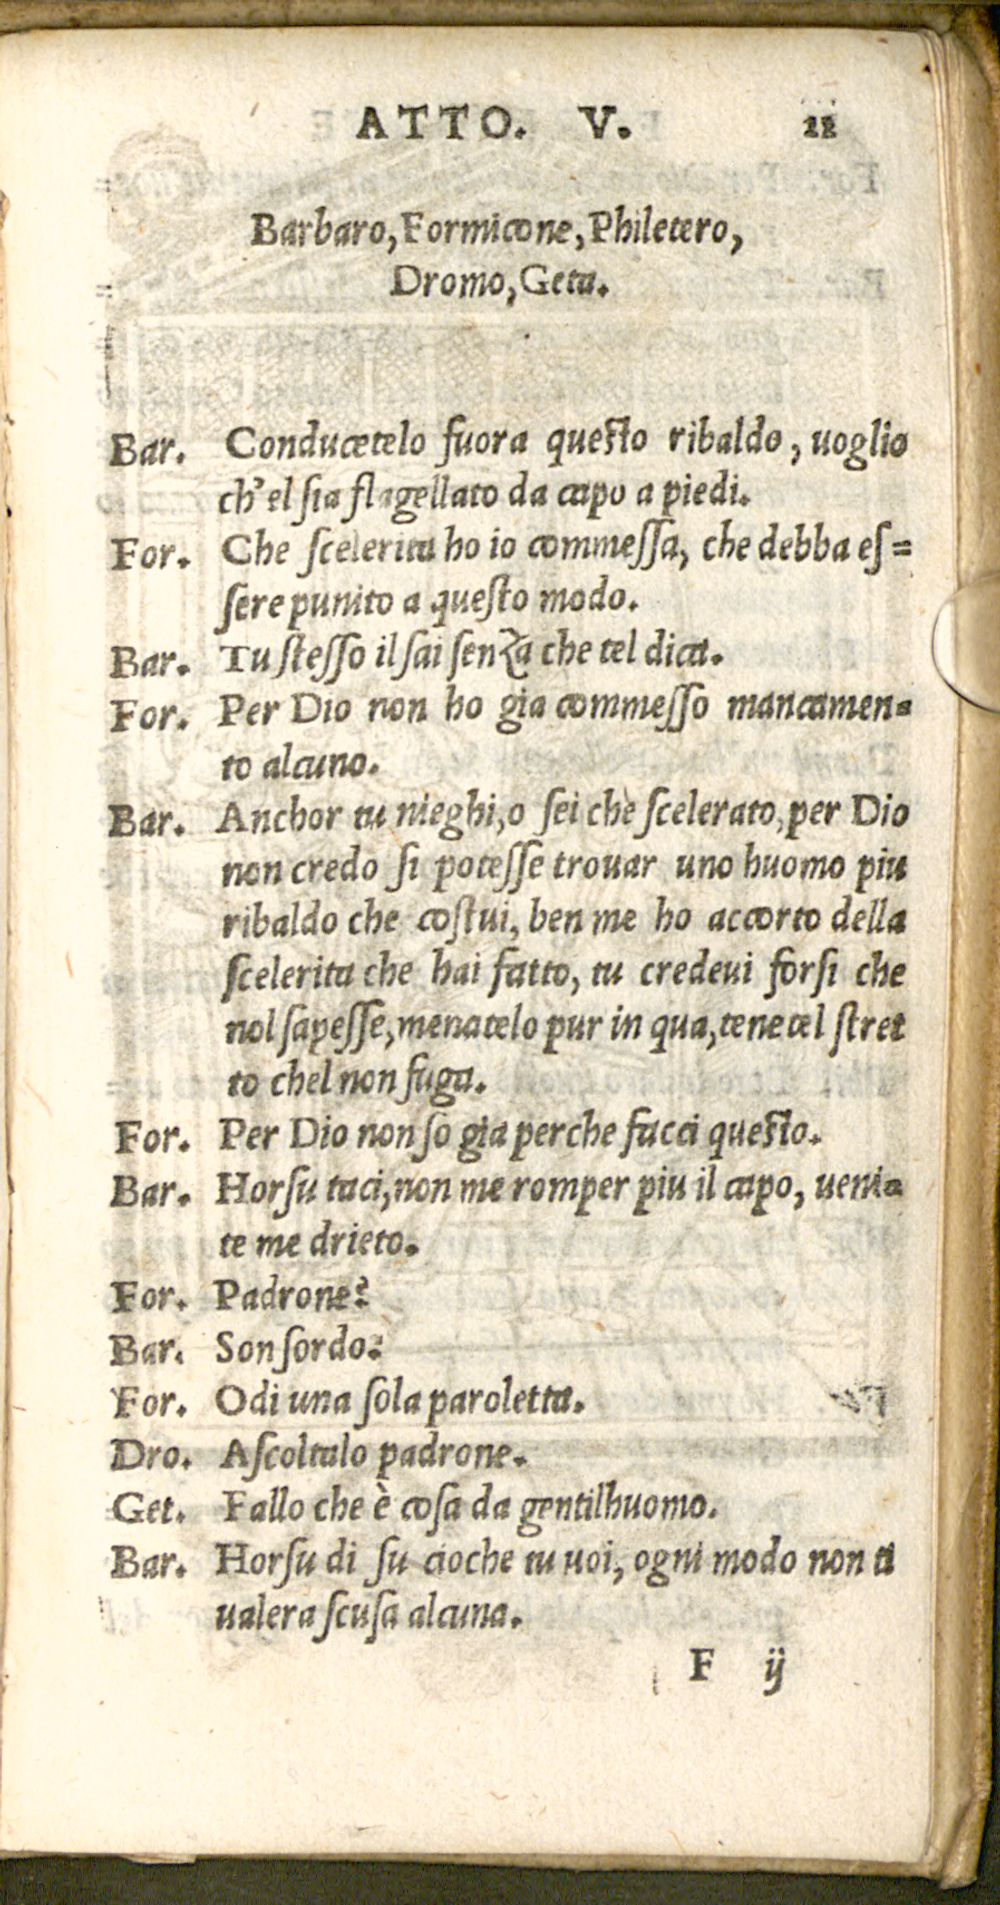 ATTO. V. 22
Barbaro, Formicone, Philetero,
Dromo, Geta.
Bar. Conducetelo fuora questo ribaldo, uoglio
ch'el sia flagellato da capo a piedi.
For. Che scelerita ho io commessa, che debba es=
sere punito a questo modo.
Bar. Tu stesso il sai senza che tel dica.
For. Per Dio non ho gia commesso mancamen=
to alcuno.
Bar. Anchor tu nieghi, o sei che scelerato, per Dio
non credo si potesse trouar uno huomo piu
ribaldo che costui, ben me ho accorto della
scelerita che hai fatto, tu credeui forsi che
nol sapesse, menatelo pur in qua, tenetel stret
to chel non fuga.
For. Per Dio non so gia perche facci questo.
Bar. Horsu taci, non me romper piu il capo, ueni=
te me drieto.
For. Padrone?
Bar. Son sordo?
For. Odi una sola paroletta.
Dro. Ascoltalo padrone.
Get. Fallo che è cosa da gentilhuomo.
Bar. Horsu di su cioche tu uoi, ogni modo non ti
ualera scusa alcuna.
F ij